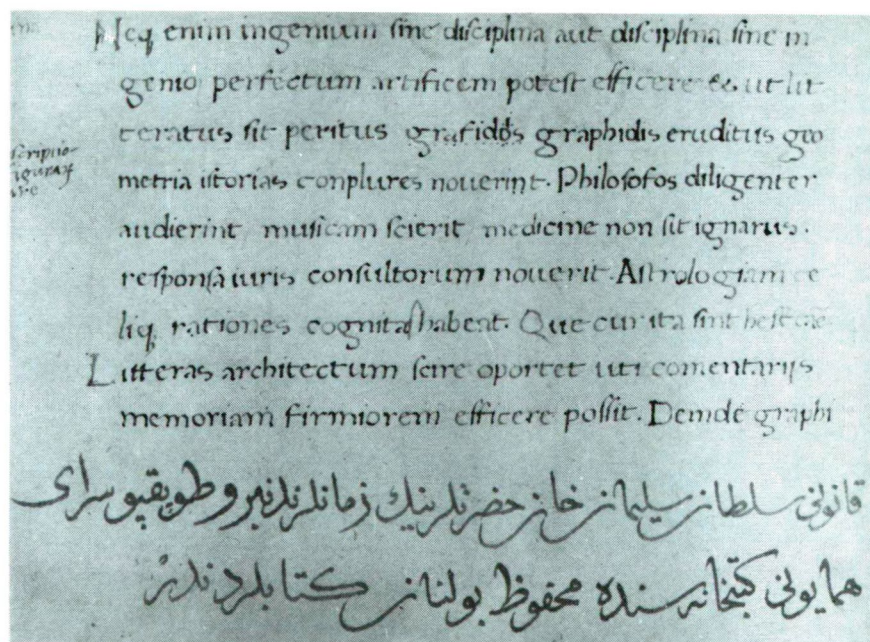 Neq enim ingenium sine disciplina aut disciplina sine in
genio perfectum artificem potest efficere & ut lit
teratus sit peritus grafidos graphidis eruditus geo
metria istorias conplures noverint. Philosofos diligenter
audierint musicam scierit medicine non sit ignarus.
responsa iuris consultorum noverit. Astrologiam ce
liq rationes cognitas habeat. Que cur ita sint
Litteras architectum scire oportet uti comentarijs
memoriam firmiorem efficere possit. Deinde graphi
قانونى سلطان سليمان خان حضرتلرينك زمانلرندنبرو طوپقپو سراى
همايونى كتبخانه سنده محفوظ بولنان كتابلردندر